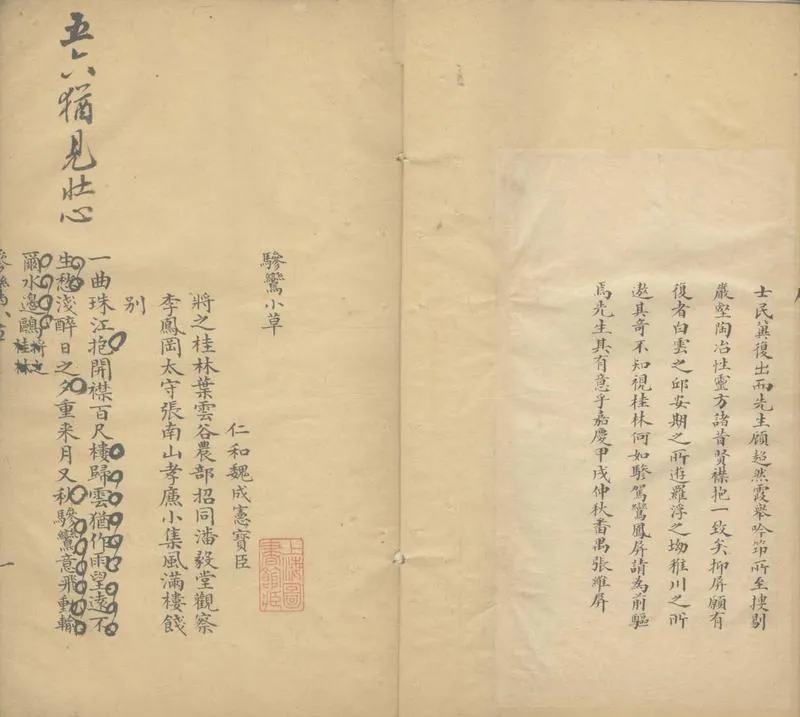 士民冀復出而先生顧超然霞舉吟筇所至搜剔
巖壑陶冶性靈方諸昔賢襟抱一致矣抑屏願有
復者白雲之邱安期之所遊羅浮之坳稚川之所
遨其奇不知視桂林何如驂駕鸞鳳屏請為前驅
焉先生其有意乎嘉慶甲戌仲秋番禺張維屏
驂鸞小草
仁和魏成憲寶臣
將之桂林葉雲谷農部招同潘毅堂觀察
李鳳岡太守張南山孝廉小集風滿樓餞
別
一曲珠江抱開襟百尺樓歸雲猶作雨望遠不
生愁淺醉日之夕重来月又秋驂鸞意飛動輸
爾水邊鷗將之桂林
五六猶見壯心
驂鸞小草
一
上海圖書館藏